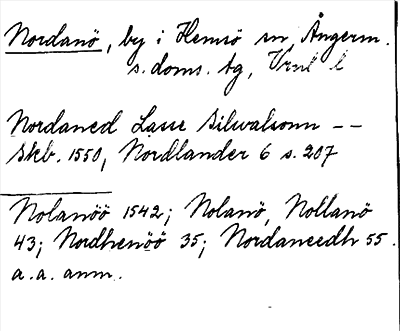 Nordanö, by i Hemsö sn Ångerm.
s. doms. tg, Vrnl l
Nordaned Lasse Silwalsonn --
Skb. 1550, Nordlander 6 s. 207
Nolanöö 1542; Nolanö, Nollanö
43; Nordhenöö 35; Nordaneedh 55.
a.a. anm.